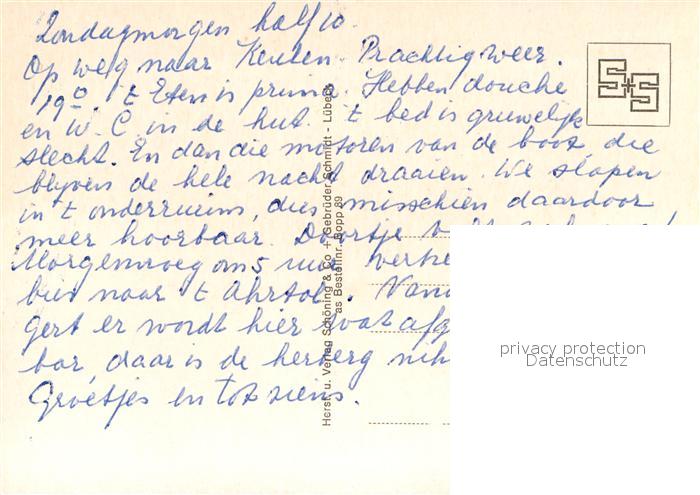 Zondagmorgen half 10.
Op weg naar Keulen. Prachtig weer.
19°. 't Eten is prima. Hebben douche
en W.C. in de hut. 't bed is gruwelijk
slecht. En dan die motoren van de boot, die
blijven de hele nacht draaien. We slapen
in 't onderruim, dus misschien daardoor
meer hoorbaar. Doortje
Morgenvroeg om 5 uur
bus naar 't Ahrtal.
gert er wordt hier wat
bar, daar is de herberg
Groetjes en tot ziens.
Horst u. Verlag Schöning & Co + Gebrüder Schmidt - Lübeck
as Bestellnr. Bopp 89
S+S
privacy protection
Datenschutz